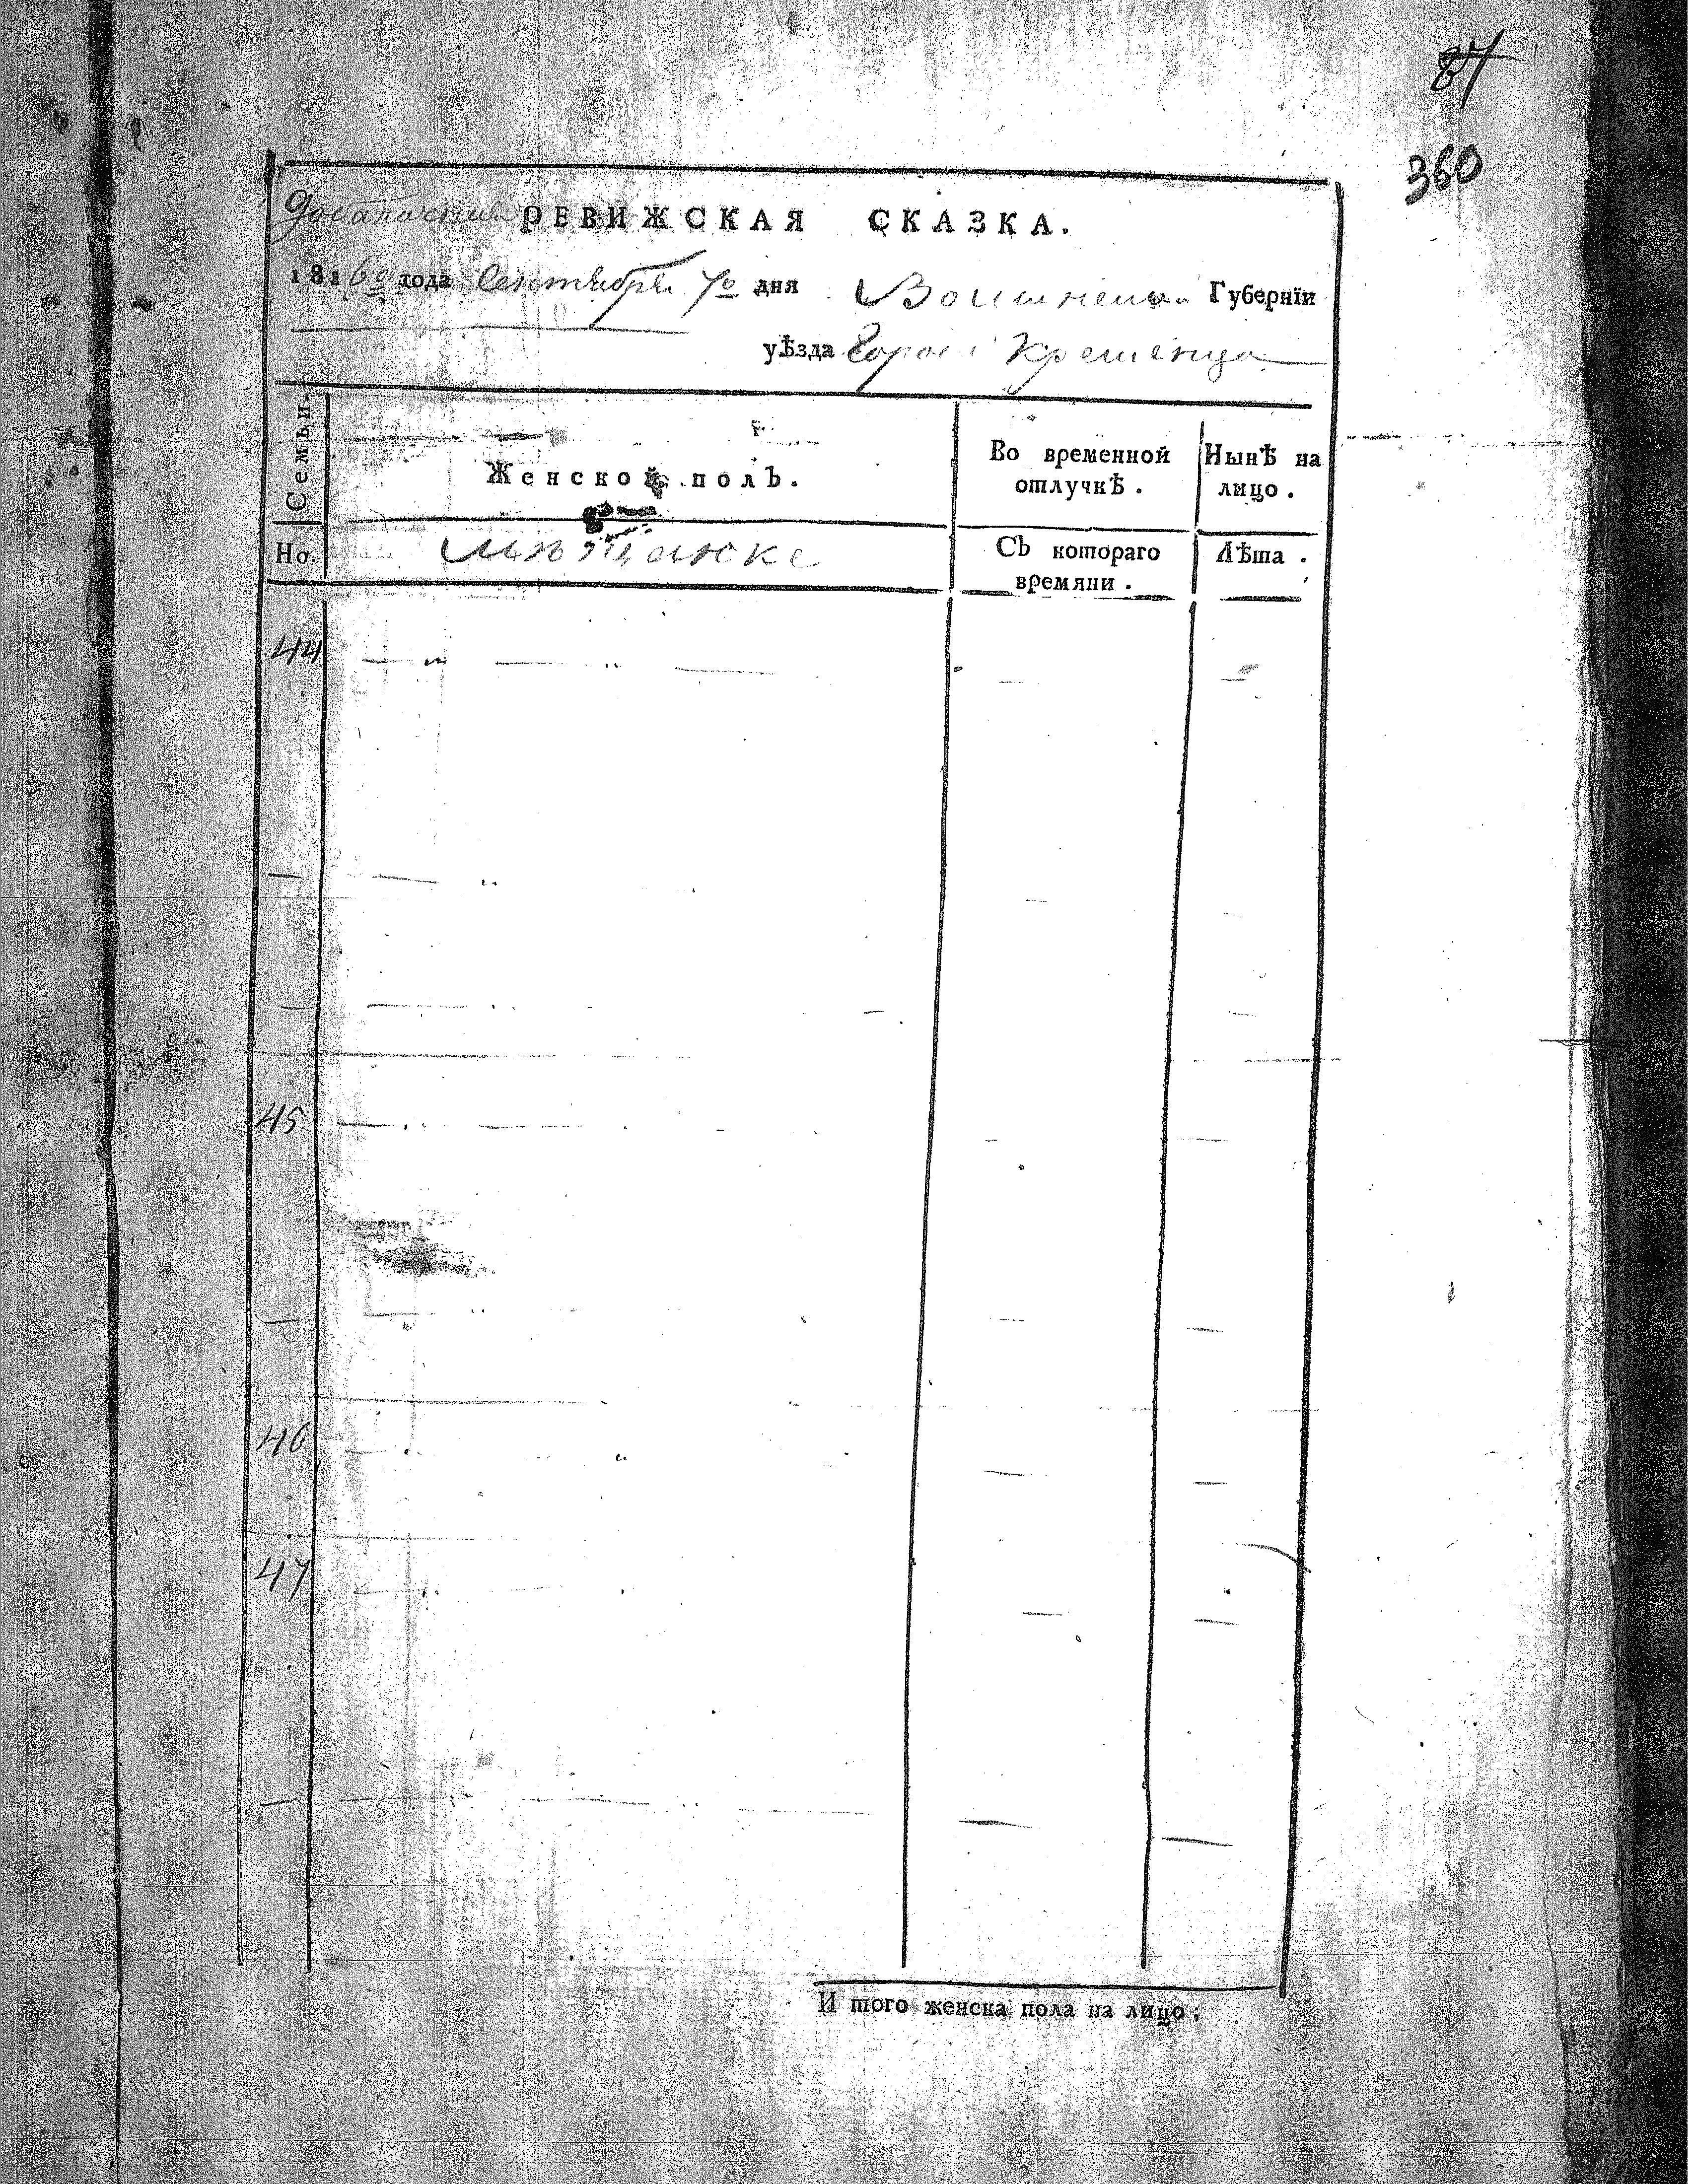 87
360
РЕВИЖСКАЯ СКАЗКА.
1816го года Сентября 7го дня Волынской Губернїи
уѣзда Города Кременца
Семьи.
Женской полъ.
Во временной отлучкѣ.
Нынѣ на лицо.
Но.
мѣщанске
Съ котораго времяни.
Лѣта.
44
45
46
47
И того женска пола на лицо: